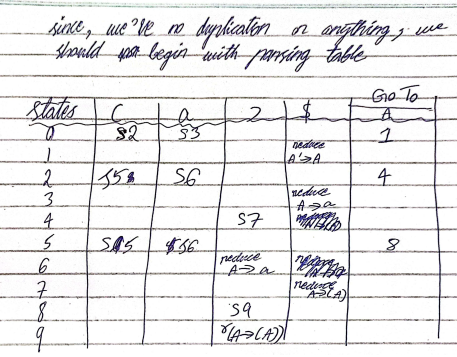 since, we've no duplication or anything, we
should begin with parsing table
Go To
States ( a ) $ A
0 S2 S3 1
1 reduce A'→A
2 S5 S6 4
3 reduce A→a
4 S7
5 S5 S6 8
6 reduce A→a
7 reduce A→(A)
8 S9
9 r(A→(A))